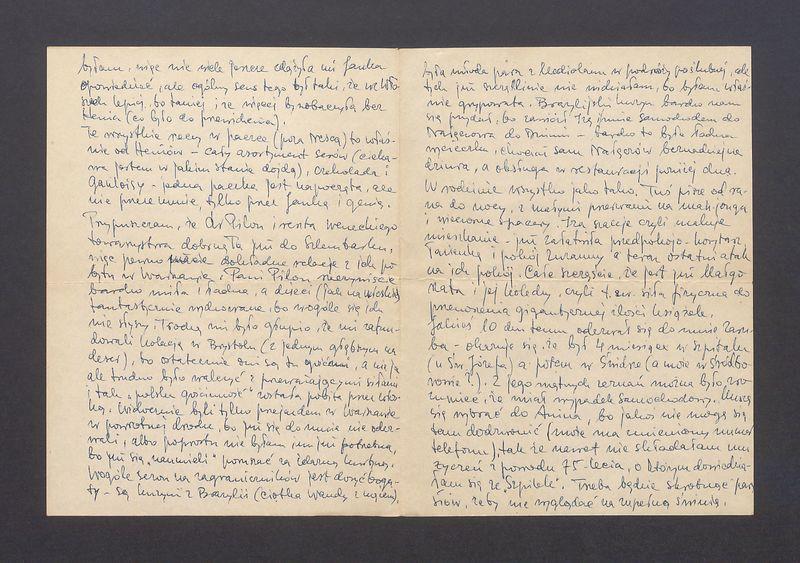 byłam, więc nie wiele jeszcze zdążyła mi Janka
opowiedzieć, ale ogólny sens tego był taki, że we Wło-
szech lepiej, bo taniej i że więcej by zobaczyła bez
Henia (co było do przewidzenia).
Te wszystkie rzeczy w paczce (poza Nescą) to właś-
nie od Heniów – cały asortyment serów (cieka-
wa jestem w jakim stanie dojdą), czekolada i
Gauloisy – jedna paczka jest napoczęta, ale
nie przeze mnie, tylko przez Jankę i Genię.
Przypuszczam, że Dr Pilon i reszta weneckiego
towarzystwa dobrnęła już do
więc pewno macie dokładne relacje z ich po-
bytu w Warszawie. Pani Pilon rzeczywiście
bardzo miła i ładna, a dzieci (jak na włoskie)
fantastycznie wychowane, bo wogóle się ich
nie słyszy. Trochę mi było głupio, że mi zafun-
dowali kolację w Bristolu (z jednym głębszym na
deser), bo ostatecznie oni są tu gośćmi, a nie ja
ale trudno było walczyć z przeważającymi siłami
i tak „polska gościnność" została pobita przez wło-
ską. Widocznie byli tylko przejazdem w Warszawie
w powrotnej drodze, bo już się do mnie nie ode-
zwali, albo poprostu nie byłam im już potrzebna,
bo już się „nauczyli" poruszać za żelazną kurtyną.
Wogóle sezon na zagraniczników jest dosyć boga-
ty – są kuzyni z Brazylii (ciotka Wandy z mężem),
była młoda para z Mediolanu w podróży poślubnej, ale
tych już szczęśliwie nie widziałam, bo byłam właś-
nie grypowata. Brazylijski kuzyn bardzo nam
się przydał, bo zawiózł Izę i mnie samochodem do
Nałęczowa do Mimi – bardzo to była ładna
wycieczka, chociaż sam Nałęczów beznadziejna
dziura, a obsługa w restauracji poniżej dna.
W rodzinie wszystko jako tako. Tuś pisze od ra-
na do nocy, z małymi przerwami na mah-jonga
i wieczorne spacery. Iza szaleje czyli maluje
mieszkanie – już załatwiła przedpokojo-korytarz
łazienkę i pokój Zuzanny a teraz ostatni atak
na ich pokój. Całe szczęście, że jest już Małgo-
rzata i jej koledzy, czyli t.zw. siła fizyczna do
przenoszenia gigantycznej ilości książek.
Jakieś 10 dni temu odezwał się do mnie Zaru-
ba – okazuje się, że był 4 miesiące w szpitalu
(u Św Józefa) a potem w Śródborowie (a może w Śródbo-
rowie?). Z jego mętnych zeznań można było zro-
zumieć, że miał wypadek samochodowy. Muszę
się wybrać do Anina, bo jakoś nie mogę się
tam dodzwonić (może ma zmieniony numer
telefonu), tak że nawet nie składałam mu
życzeń z powodu 75-lecia, o którym dowiedzia-
łam się ze „Szpilek". Trzeba będzie skrobnąć parę
słów, żeby nie wyglądać na zupełną świnię.